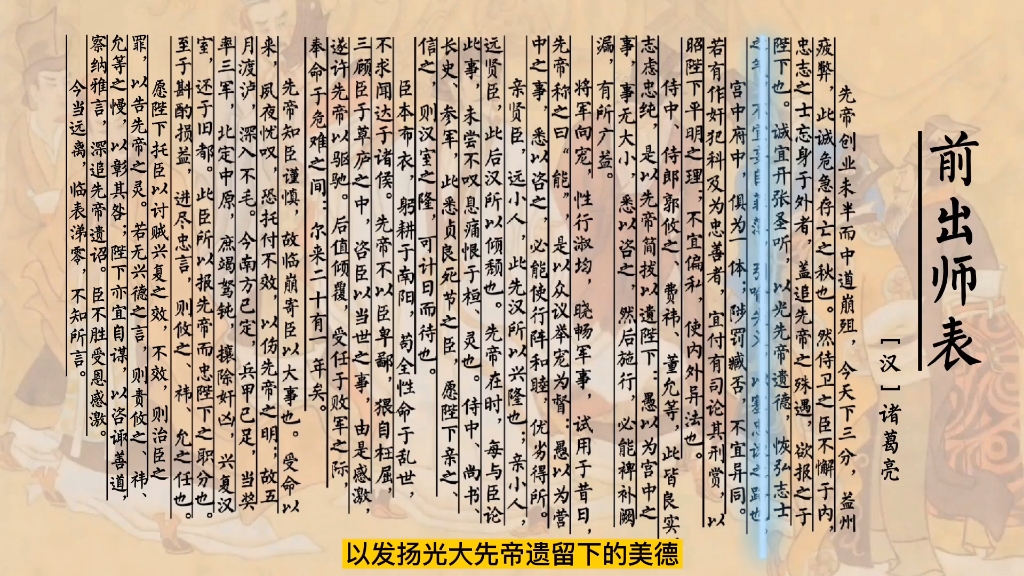 前出师表
[汉]诸葛亮
先帝创业未半而中道崩殂，今天下三分，益州
疲弊，此诚危急存亡之秋也。然侍卫之臣不懈于内，
忠志之士忘身于外者，盖追先帝之殊遇，欲报之于
陛下也。诚宜开张圣听，以光先帝遗德，恢弘志士
之气，不宜妄自菲薄，引喻失义，以塞忠谏之路也
宫中府中，俱为一体；陟罚臧否，不宜异同。
若有作奸犯科及为忠善者，宜付有司论其刑赏，以
昭陛下平明之理，不宜偏私，使内外异法也。
侍中、侍郎郭攸之、费祎、董允等，此皆良实，
志虑忠纯，是以先帝简拔以遗陛下：愚以为宫中之
事，事无大小，悉以咨之，然后施行，必能裨补阙
漏，有所广益。
将军向宠，性行淑均，晓畅军事，试用于昔日，
先帝称之曰“能”，是以众议举宠为督：愚以为营
中之事，悉以咨之，必能使行阵和睦，优劣得所。
亲贤臣，远小人，此先汉所以兴隆也；亲小人，
远贤臣，此后汉所以倾颓也。先帝在时，每与臣论
此事，未尝不叹息痛恨于桓、灵也。侍中、尚书、
长史、参军，此悉贞良死节之臣，愿陛下亲之、
信之，则汉室之隆，可计日而待也。
臣本布衣，躬耕于南阳，苟全性命于乱世，
不求闻达于诸侯。先帝不以臣卑鄙，猥自枉屈，
三顾臣于草庐之中，咨臣以当世之事，由是感激，
遂许先帝以驱驰。后值倾覆，受任于败军之际，
奉命于危难之间：尔来二十有一年矣。
先帝知臣谨慎，故临崩寄臣以大事也。受命以
来，夙夜忧叹，恐托付不效，以伤先帝之明；故五
月渡泸，深入不毛。今南方已定，兵甲已足，当奖
率三军，北定中原，庶竭驽钝，攘除奸凶，兴复汉
室，还于旧都。此臣所以报先帝而忠陛下之职分也。
至于斟酌损益，进尽忠言，则攸之、祎、允之任也。
愿陛下托臣以讨贼兴复之效，不效，则治臣之
罪，以告先帝之灵。若无兴德之言，则责攸之、祎、
允等之慢，以彰其咎；陛下亦宜自谋，以咨诹善道，
察纳雅言，深追先帝遗诏。臣不胜受恩感激。
今当远离，临表涕零，不知所言。
以发扬光大先帝遗留下的美德